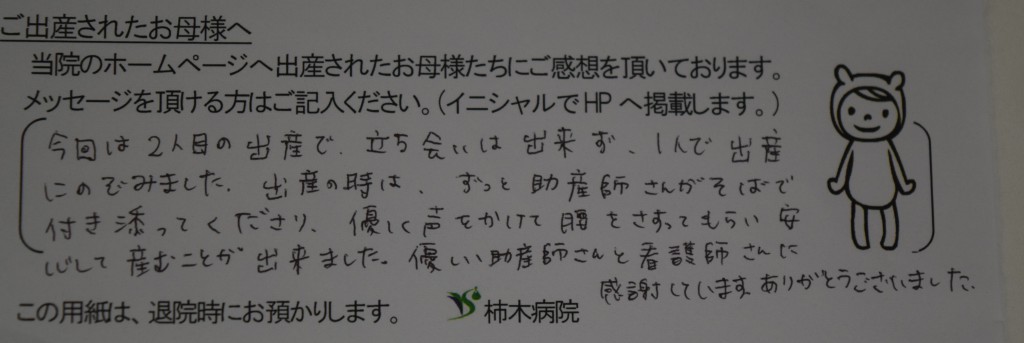 ご出産されたお母様へ
当院のホームページへ出産されたお母様たちにご感想を頂いております。
メッセージを頂ける方はご記入ください。（イニシャルでHPへ掲載します。）
今回は2人目の出産で、立ち会いは出来ず、1人で出産
にのぞみました。出産の時は、ずっと助産師さんがそばで
付き添ってくださり、優しく声をかけて腰をさすってもらい安
心して産むことが出来ました。優しい助産師さんと看護師さんに
感謝しています。ありがとうございました。
この用紙は、退院時にお預かりします。 柿木病院